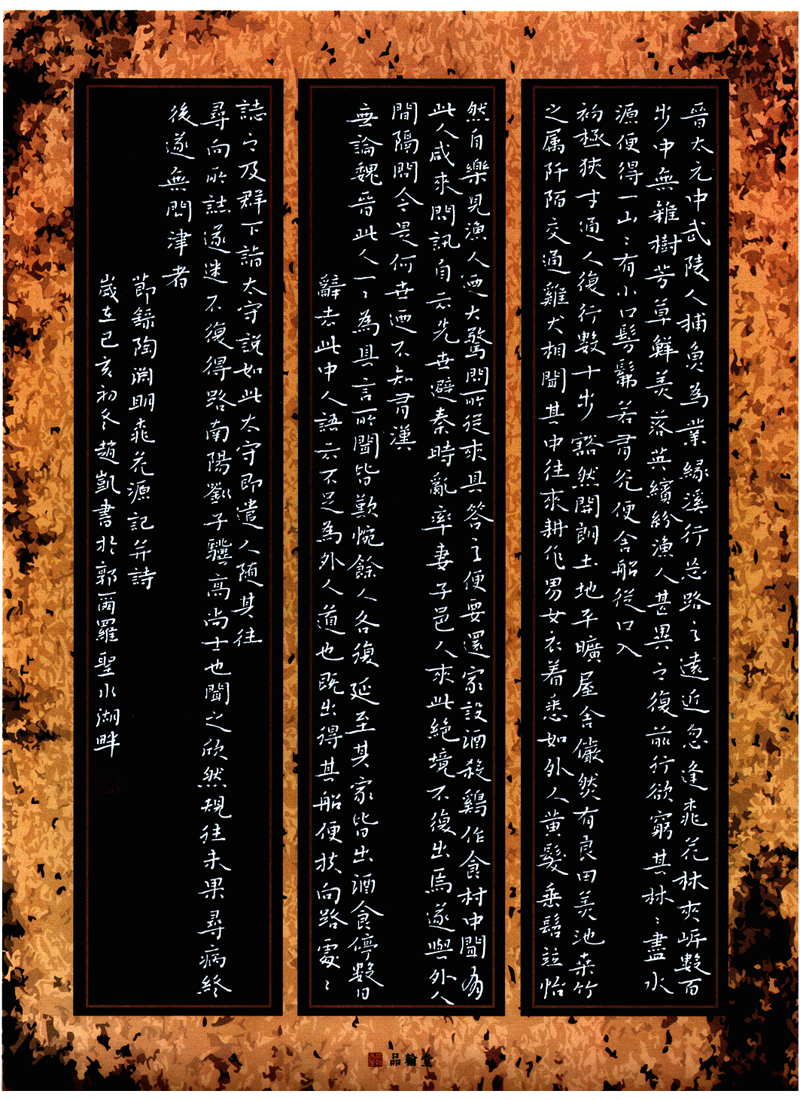 晉太元中武陵人捕魚為業緣溪行忘路之遠近忽逢桃花林夾岸數百
步中無雜樹芳草鮮美落英繽紛漁人甚異之復前行欲窮其林〻盡水
源便得一山〻有小口髣髴若有光便舍船從口入
初極狹才通人復行數十步豁然開朗土地平曠屋舍儼然有良田美池桑竹
之属阡陌交通雞犬相聞其中往來耕作男女衣着悉如外人黄髮垂髫並怡
然自樂見漁人迺大驚問所從來具答之便要還家設酒殺鷄作食村中聞有
此人咸來問訊自云先世避秦時亂率妻子邑人來此絶境不復出焉遂與外人
間隔問今是何世迺不知有漢
無論魏晉此人一〻為具言所聞皆歎惋餘人各復延至其家皆出酒食停數日
辭去此中人語云不足為外人道也既出得其船便扶向路處〻
誌之及群下詣太守說如此太守即遣人隨其往
尋向所誌遂迷不復得路南陽劉子驥高尚士也聞之欣然規往未果尋病終
後遂無問津者
節錄陶淵明桃花源記并詩
歲在己亥初冬趙凱書於郭爾羅聖水湖畔
品翰堂